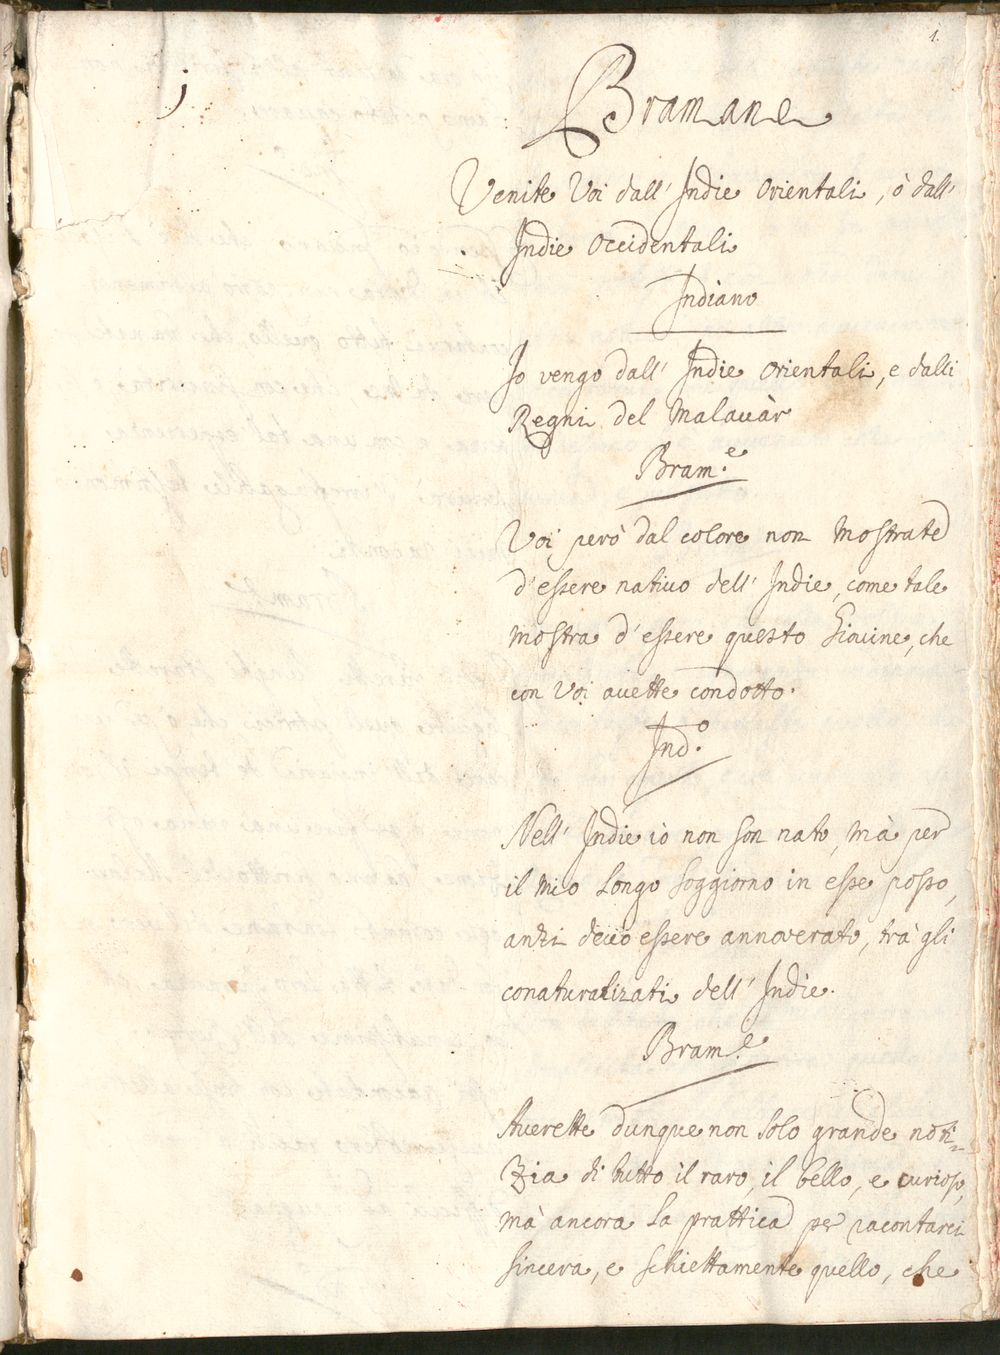 1.
Bramane
Venite Voi dall' Indie Orientali, ò dall'
Indie Occidentali
Indiano
Io vengo dall' Indie Orientali, e dalli
Regni del Malauàr
Bram.e
Voi però dal colore non mostrate
d'essere natiuo dell' Indie, come tale
mostra d'essere questo Giouine, che
con Voi auette condotto.
Ind.o
Nell' Indie iò non son nato, mà per
il mio longo soggiorno in esse posso,
anzi deuo essere annoverato, trà gli
conaturalizati dell' Indie.
Bram.e
Auerette dunque non solo grande noti-
zia di tutto il raro, il bello, e curioso,
mà ancora la prattica per racontarci
sincera, e schiettamente quello, che